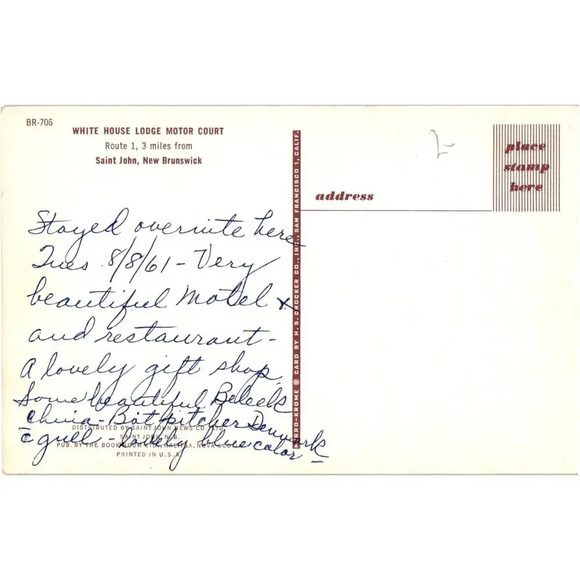 BR-706
WHITE HOUSE LODGE MOTOR COURT
Route 1, 3 miles from
Saint John, New Brunswick
Stayed overnite here
Tues 8/8/61 - Very
beautiful Motel &
and restaurant -
a lovely gift shop.
Some beautiful Beleek
china - Bot pitcher Denmark
c̄ gull - lovely blue color
DISTRIBUTED BY SAINT JOHN NEWS CO. LTD.
SAINT JOHN, N.B.
PUB. BY THE BOOK ROOM LTD., HALIFAX, NOVA SCOTIA
PRINTED IN U.S.A.
MIRRO-KROME ® CARD BY H. S. CROCKER CO., INC., SAN FRANCISCO 1, CALIF.
address
2-
place
stamp
here